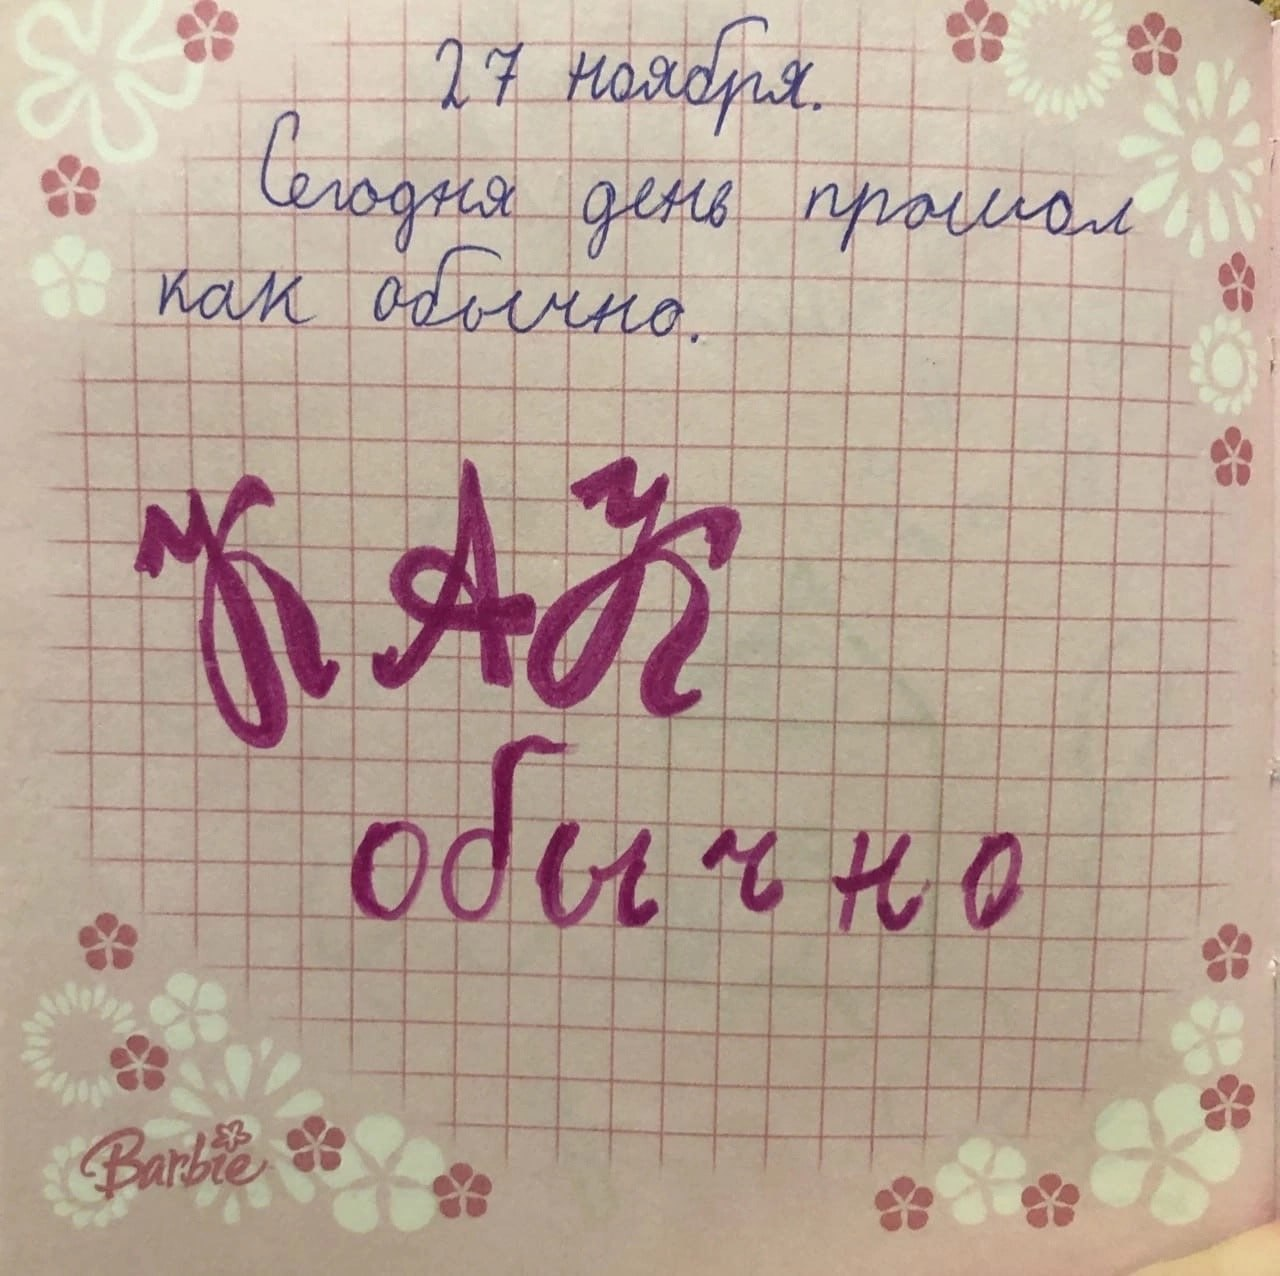 27 ноября.
Сегодня день прошол
как обычно.
КАК
обычно
Barbie